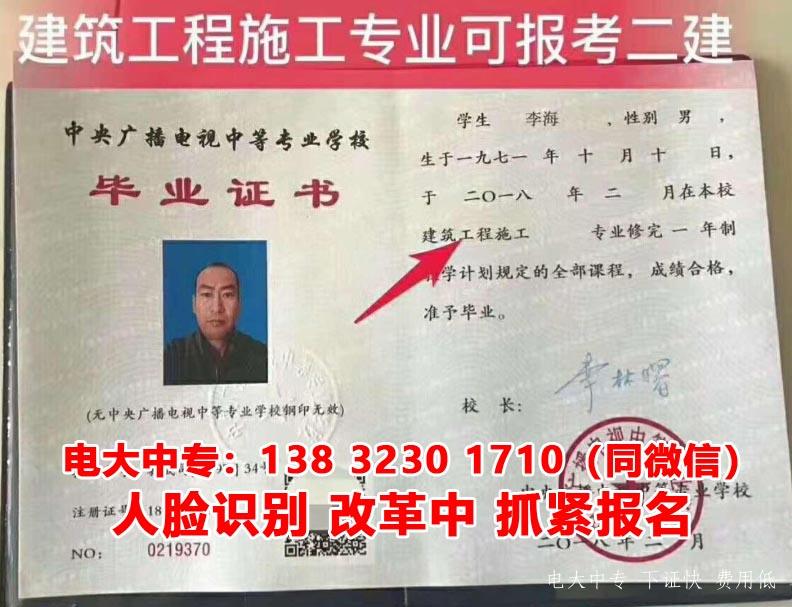 建筑工程施工专业可报考二建
中央广播电视中等专业学校
毕业证书
(无中央广播电视中等专业学校钢印无效)
注册证号 18
NO: 0219370
学生 李海 ，性别 男 ，
生于一九七一 年 十 月 十 日，
于 二〇一八 年 二 月在本校
建筑工程施工 专业修完 一 年制
学计划规定的全部课程，成绩合格，
准予毕业。
校 长：
李林曙
二〇一八年二 月
电大中专：138 3230 1710（同微信）
人脸识别 改革中 抓紧报名
电大中专 下证快 费用低